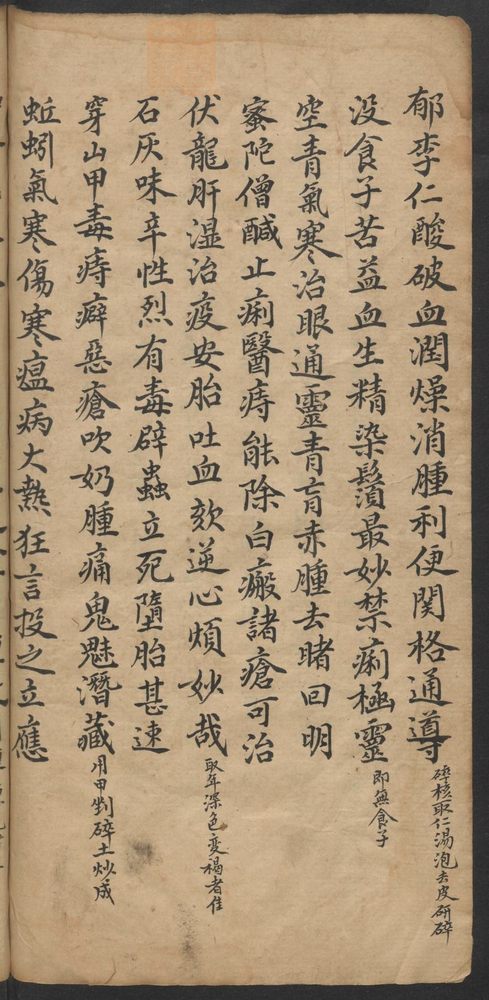 郁李仁酸破血潤燥消腫利便関格通導 碎核取仁湯泡去皮研碎
没食子苦益血生精染鬚最妙禁痢極靈 即無食子
空青氣寒治眼通靈青盲赤腫去暗回明
蜜陀僧醎止痢醫痔能除白瘢諸瘡可治
伏龍肝湿治疫安胎吐血欬逆心煩妙哉 取年深色变褐者佳
石灰味辛性烈有毒辟蟲立死墮胎甚速
穿山甲毒痔癖惡瘡吹奶腫痛鬼魅潛藏 用甲剉碎土炒成
蚯蚓氣寒傷寒瘟病大熱狂言投之立應